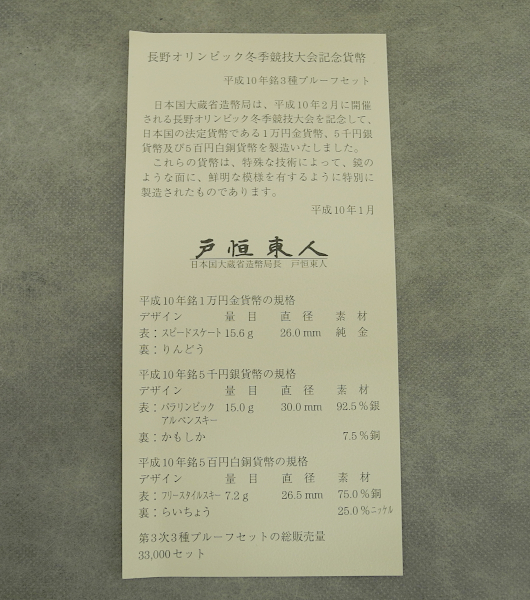 長野オリンピック冬季競技大会記念貨幣
平成10年銘3種プルーフセット
日本国大蔵省造幣局は、平成10年2月に開催
される長野オリンピック冬季競技大会を記念して、
日本国の法定貨幣である1万円金貨幣、5千円銀
貨幣及び5百円白銅貨幣を製造いたしました。
これらの貨幣は、特殊な技術によって、鏡の
ような面に、鮮明な模様を有するように特別に
製造されたものであります。
平成10年1月
戸恒東人
日本国大蔵省造幣局長 戸恒東人
平成10年銘1万円金貨幣の規格
デザイン 量目 直径 素材
表：スピードスケート 15.6g 26.0mm 純金
裏：りんどう
平成10年銘5千円銀貨幣の規格
デザイン 量目 直径 素材
表：パラリンピック 15.0g 30.0mm 92.5％銀
アルペンスキー
裏：かもしか 7.5％銅
平成10年銘5百円白銅貨幣の規格
デザイン 量目 直径 素材
表：フリースタイルスキー 7.2g 26.5mm 75.0％銅
裏：らいちょう 25.0％ニッケル
第3次3種プルーフセットの総販売量
33,000セット